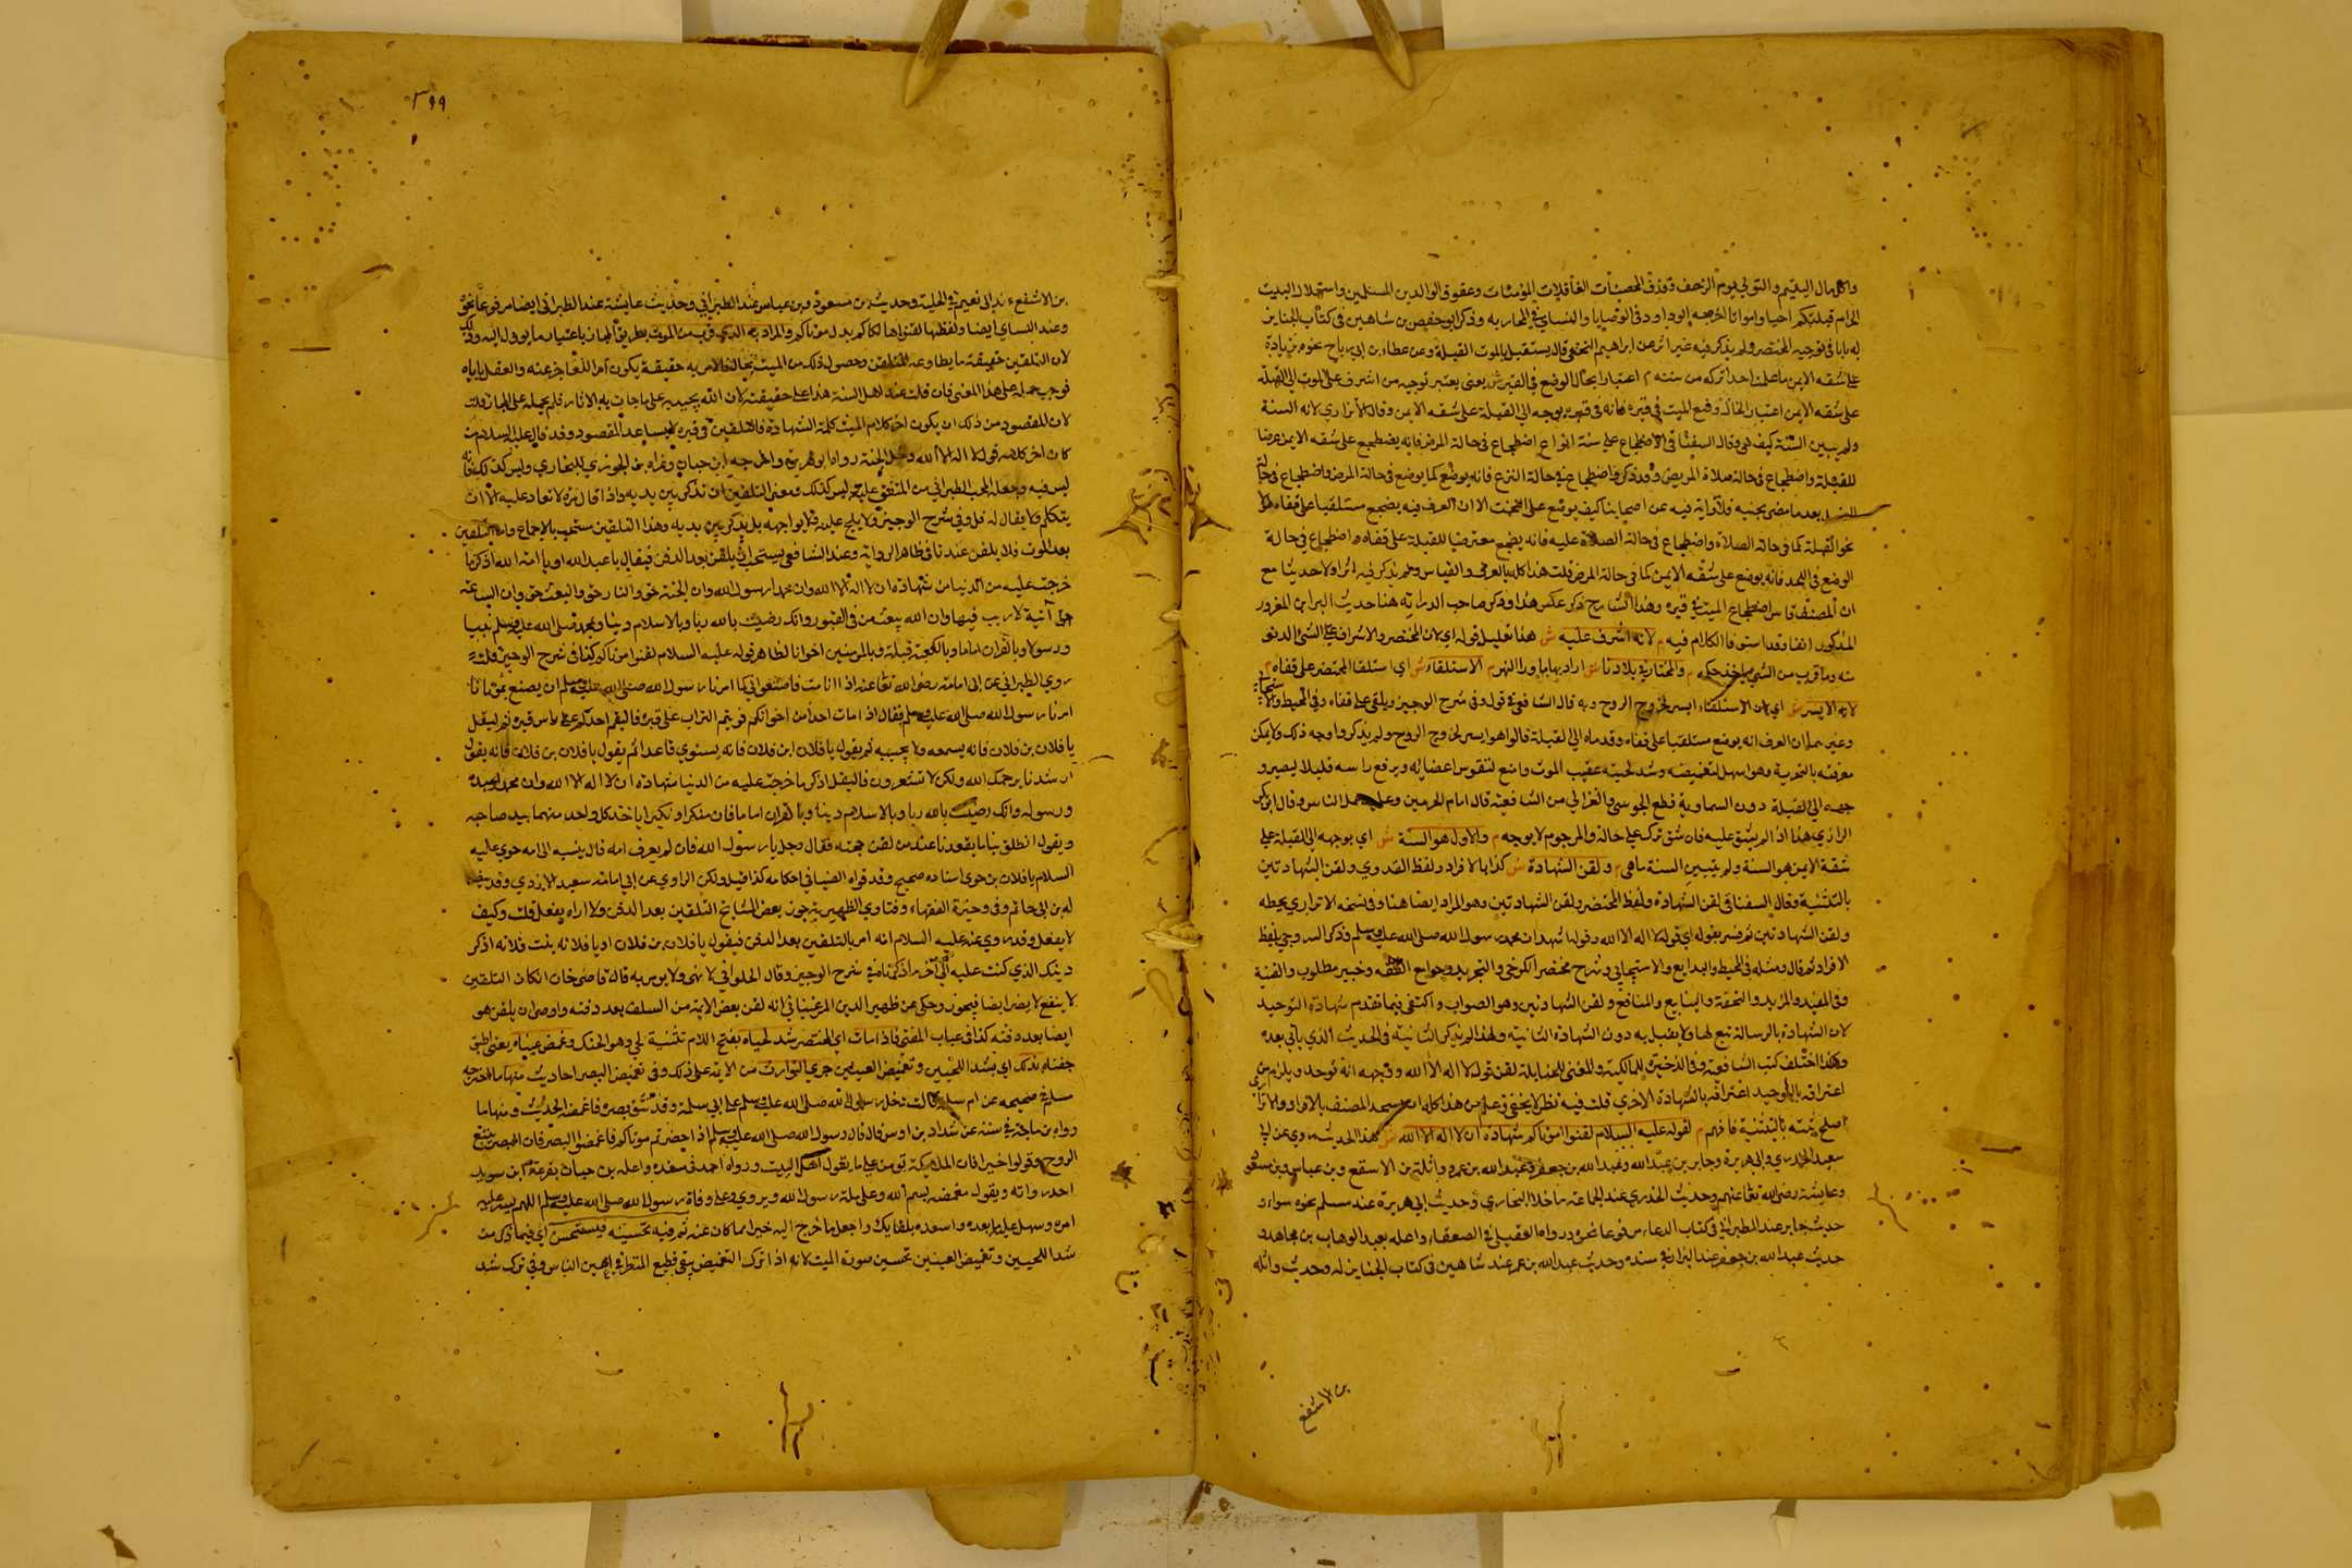 واكل مال اليتيم والتولي يوم الزحف وقذف المحصنات الغافلات المؤمنات وعقوق الوالدين المسلمين واستحلال البيت
الحرام قبلتكم احياء وامواتا اخرجه ابو داود في الوصايا والنساي في المحاربه وذكر ابو حفص بن شاهين في كتاب الجنايز
له بابا في توجيه المحتضر ولم يذكر فيه غير اثر عن ابراهيم النخعي قال يستقبل بالميت القبلة وعن عطاء بن ابي رباح نحوه بزيادة
على شقه الايمن ما علمت احدا تركه من سنته م اعتبارا بحال الوضع في القبر ش يعني يعتبر توجيه من اشرف على الموت الى القبلة
على شقه الايمن اعتبار الحالة وضع الميت في قبره فانه في قبره يوجه الى القبلة على شقه الايمن وقال الاتراري لانه السنة
ولم يبين السنة كيف هي وقال السغناقي الاضطجاع على ستة انواع اضطجاع في حالة المرض فانه يضطجع على شقه الايمن عرضا
للقبلة واضطجاع في حالة صلاة المريض وقد ذكر واضطجاع في حالة النزع فانه يوضع كما يوضع في حالة المرض واضطجاع في حالة
بعد ما مضى بجنبه فلا رواية فيه عن اصحابنا كيف يوضع على التخت الا ان العرف فيه يضجع مستلقيا على قفاه
نحو القبلة كما في حالة الصلاة واضطجاع في حالة الصلاة عليه فانه يضجع معترضا للقبلة على قفاه واضطجاع في حالة
الوضع في اللحد فانه يوضع على شقه الايمن كما في حالة المرض قلت هذا كله بالعرف والقياس ولم يذكر فيه اثرا ولا حديثا مع
ان المصنف قاس اضطجاع الميت في قبره وهذا الشارح ذكر عكس هذا وذكر صاحب الدراية هنا حديث البراء بن المعرور
المذكور انفا وقد استوفا الكلام فيه م لانه اشرف عليه ش هذا تعليل قوله اي لان المحتضر والاشراف على الشي الدنو
منه وما قرب من الشي ياخذ حكمه م والمختار في بلادنا ش اراد بها ما وراء النهر م الاستلقاء ش اي استلقا المحتضر على قفاه م
لانه الايسر ش اي لان الاستلقاء ايسر لخروج الروح وبه قال الشافعي في قول وفي شرح الوجيز ويلقى على قفاه وفي المحيط
وغيرهما ان العرف انه يوضع مستلقيا على قفاه وقدماه الى القبلة قالوا هو ايسر لخروج الروح ولم يذكروا وجه ذلك ولا يمكن
معرفته بالتجربة وهو اسهل لتغميضه وشد لحيته عقيب الموت وامنع لتقوس اعضائه ويرفع راسه قليلا ليصير و
جهه الى القبلة دون السما وبه قطع الجويني والغزالي من الشافعية قال امام الحرمين وعليه عمل الناس وقال ابو بكر
الرازي هذا اذا لم يشق عليه فان شق ترك على حاله والمرجوم لا يوجه م والاول هو السنة ش اي يوجهه الى القبلة على
شقه الايمن هو السنة ولم يتبين السنة ما هي م ولقن الشهادة ش كذا بالافراد ولفظ القدوري ولقن الشهادتين
بالتثنية وقال السغناقي لقن الشهادة ولفظ المختصر ولقن الشهادتين وهو المراد ايضا هنا وفي نسخة الاتراري بخطه
ولقن الشهادتين ثم فسر بقوله اي قوله لا اله الا الله وقوله اشهد ان محمد رسول الله صلى الله عليه وسلم وذكر السروجي بلفظ
الافراد ثم قال ومثله في المحيط والبدايع والاسبيجابي وشرح مختصر الكرخي والتجريد وجوامع الفقه وخير مطلوب والقنية
وفي المفيد والمزيد والتحفة والينابيع والمنافع ولقن الشهادتين وهو الصواب واكتفى فيما تقدم بشهادة التوحيد
لان الشهادة بالرسالة تبع لها ولا يقبل به دون الشهادة الثانية ولهذا لم يذكر الثانية في الحديث الذي يأتي بعده
وهكذا اختلف كتب الشافعية وفي الذخيرة للمالكية والمغني للحنابلة لقن قول لا اله الا الله ووجهه انه توحد ويلزم من
اعترافه بالتوحيد اعترافه بالشهادة الاخرى قلت فيه نظر لا يخفى فعلم من هذا كله ان المصنف بالافراد والاتراري
اصلح بيته بالتثنية فافهم م لقوله عليه السلام لقنوا موتاكم شهادة ان لا اله الا الله ش هذا الحديث روي عن ابي
سعيد الخدري وابي هريرة وجابر بن عبد الله وعبد الله بن جعفر وعبد الله بن عمر وواثلة بن الاسقع وبن عباس وبن مسعود
وعايشة رضي الله تعا عنهم وحديث الخدري عند الجماعة ما خلا البخاري وحديث ابي هريرة عند مسلم نحوه سواء و
حديث جابر عند الطبراني في كتاب الدعاء مرفوعا نحوه ورواه العقيلي في الضعفاء واعله بعبد الوهاب بن مجاهد و
حديث عبد الله بن جعفر عند البزار في سننه وحديث عبد الله بن عمر عند شاهين في كتاب الجنايز له وحديث واثلة
بن الاسقع
٣٩٩
بن الاسقع عند ابي نعيم في الحلية وحديث بن مسعود وبن عباس عند الطبراني وحديث عايشة عند الطبراني ايضا مرفوعا نحوه
وعند النساي ايضا ولفظها لقنوا هلكاكم بدل موتاكم والمراد به الذي قرب من الموت بطريق المجاز باعتبار ما يوول اليه وذلك
لان التلقين حقيقة ما يطاوعه التلقن وحصول ذلك من الميت محال فالامر به حقيقة يكون امر اللغا جز عنه والعقل ياباه
فوجب حمله على هذا المعنى فان قلت عند اهل السنة هذا على حقيقته لان الله يحييه على ما جات به الاثار فلم يحمله على المجاز قلت
لان المقصود من ذلك ان يكون اخر كلام الميت كلمة الشهادة فالتلقين في قبره لا يساعد المقصود وقد قال عليه السلام من
كان اخر كلامه قول لا اله الا الله دخل الجنة رواه ابو هريرة واخرجه ابن حبان وعزاه بن الجوزي للبخاري وليس كذلك فانه
ليس فيه وجعله المحب الطبراني من المتفق عليه وليس كذلك ومعنى التلقين ان تذكر بين يديه واذا قال مرة لا تعاد عليه الا ان
يتكلم ولا يقال له قل وفي شرح الوجيز ولا يلح عليه ولا يواجهه بل يذكر بين يديه وهذا التلقين مستحب بالاجماع واما التلقين
بعد الموت فلا يلقن عندنا في ظاهر الرواية وعند الشافعي يستحب ان يلقن بعد الدفن فيقال يا عبد الله او يا امة الله اذكر ما
خرجت عليه من الدنيا من شهادة ان لا اله الا الله وان محمدا رسول الله وان الجنة حق والنار حق والبعث حق وان الساعة
اتية لا ريب فيها وان الله يبعث من في القبور وانك رضيت بالله ربا وبالاسلام دينا وبمحمد صلى الله عليه وسلم نبيا
ورسولا وبالقران اماما وبالكعبة قبلة وبالمومنين اخوانا لظاهر قوله عليه السلام لقنوا موتاكم كذا في شرح الوجيز قلت
روى الطبراني عن ابي امامة رضي الله تعا عنه اذا انا مت فاصنعوا بي كما امرنا رسول الله صلى الله عليه وسلم ان يصنع بموتانا
امرنا رسول الله صلى الله عليه وسلم فقال اذا مات احد من اخوانكم فويتم التراب على قبره فاليقم احدكم على راس قبره ثم ليقل
يا فلان بن فلان فانه يسمعه ولا يجيبه ثم يقول يا فلان ابن فلان فانه يستوي قاعدا ثم يقول يا فلان بن فلان فانه يقول
ارشدنا يرحمك الله ولكن لا تشعرون فاليقل اذكر ما خرجت عليه من الدنيا شهادة ان لا اله الا الله وان محمدا عبده
ورسوله وانك رضيت بالله ربا وبالاسلام دينا وبالقران اماما فان منكرا ونكيرا ياخذ كل واحد منهما بيد صاحبه
ويقول انطلق بنا ما يقعدنا عند من لقن حجته فقال رجل يا رسول الله فان لم يعرف امه قال ينسبه الى امه حوى عليه
السلام يا فلان بن حوى اسناده صحيح وقد قواه الضيا في احكامه كذا قيل ولكن الراوي عن ابي امامة سعيد الازدي وقد بيض
له بن ابي حاتم وفي وحيزة الفقهاء وفتاوي الظهيرية جوز بعض المشايخ التلقين بعد الدفن ولا اراه يفعل قلت وكيف
لا يفعل وقد روي عنه عليه السلام انه امر بالتلقين بعد الدفن فيقول يا فلان بن فلان او يا فلانة بنت فلانة اذكر
دينك الذي كنت عليه الى آخر ما ذكرناه في شرح الوجيز وقال الحلواني لا ينهى ولا يومر به قال قاضي خان ان كان التلقين
لا ينفع لا يضر ايضا فيجوز وحكي عن ظهير الدين المرغيناني انه لقن بعض الايمة من السلف بعد دفنه واوصى ان يلقن هو
ايضا بعد دفنه كذا في عباب المفتي فاذا مات اي المحتضر شد لحياه بفتح اللام تثنية لحي وهو الحنك وغمض عيناه يعني اطبق
جفناه بذلك اي بشد اللحيين وتغميض العينين جرى التوارث من الامة على ذلك وفي تغميض البصر احاديث منها ما اخرجه
مسلم في صحيحه عن ام سلمة قالت دخل رسول الله صلى الله عليه وسلم على ابي سلمة وقد شق بصره فاغمضه الحديث ومنها ما
رواه بن ماجة في سننه عن شداد بن اوس قال قال رسول الله صلى الله عليه وسلم اذا حضرتم موتاكم فاغمضوا البصر فان البصر يتبع
الروح وقولوا خيرا فان الملايكة تومن على ما يقول اهل البيت ورواه احمد في مسنده واعله بن حبان بقزعة ابن سويد
احد رواته ويقول مغمضه بسم الله وعلى ملة رسول الله ويروى وعلى وفاة رسول الله صلى الله عليه وسلم اللهم يسر عليه
امره وسهل عليه ما بعده واسعده بلقايك واجعل ما خرج اليه خيرا مما كان عنه ثم فيه تحسينه فيستحسن اي فيما ذكر من
شد اللحيين وتغميض العينين تحسين صورة الميت لانه اذا ترك التغميض يبقى فظيع المنظر في اعين الناس وفي ترك شد